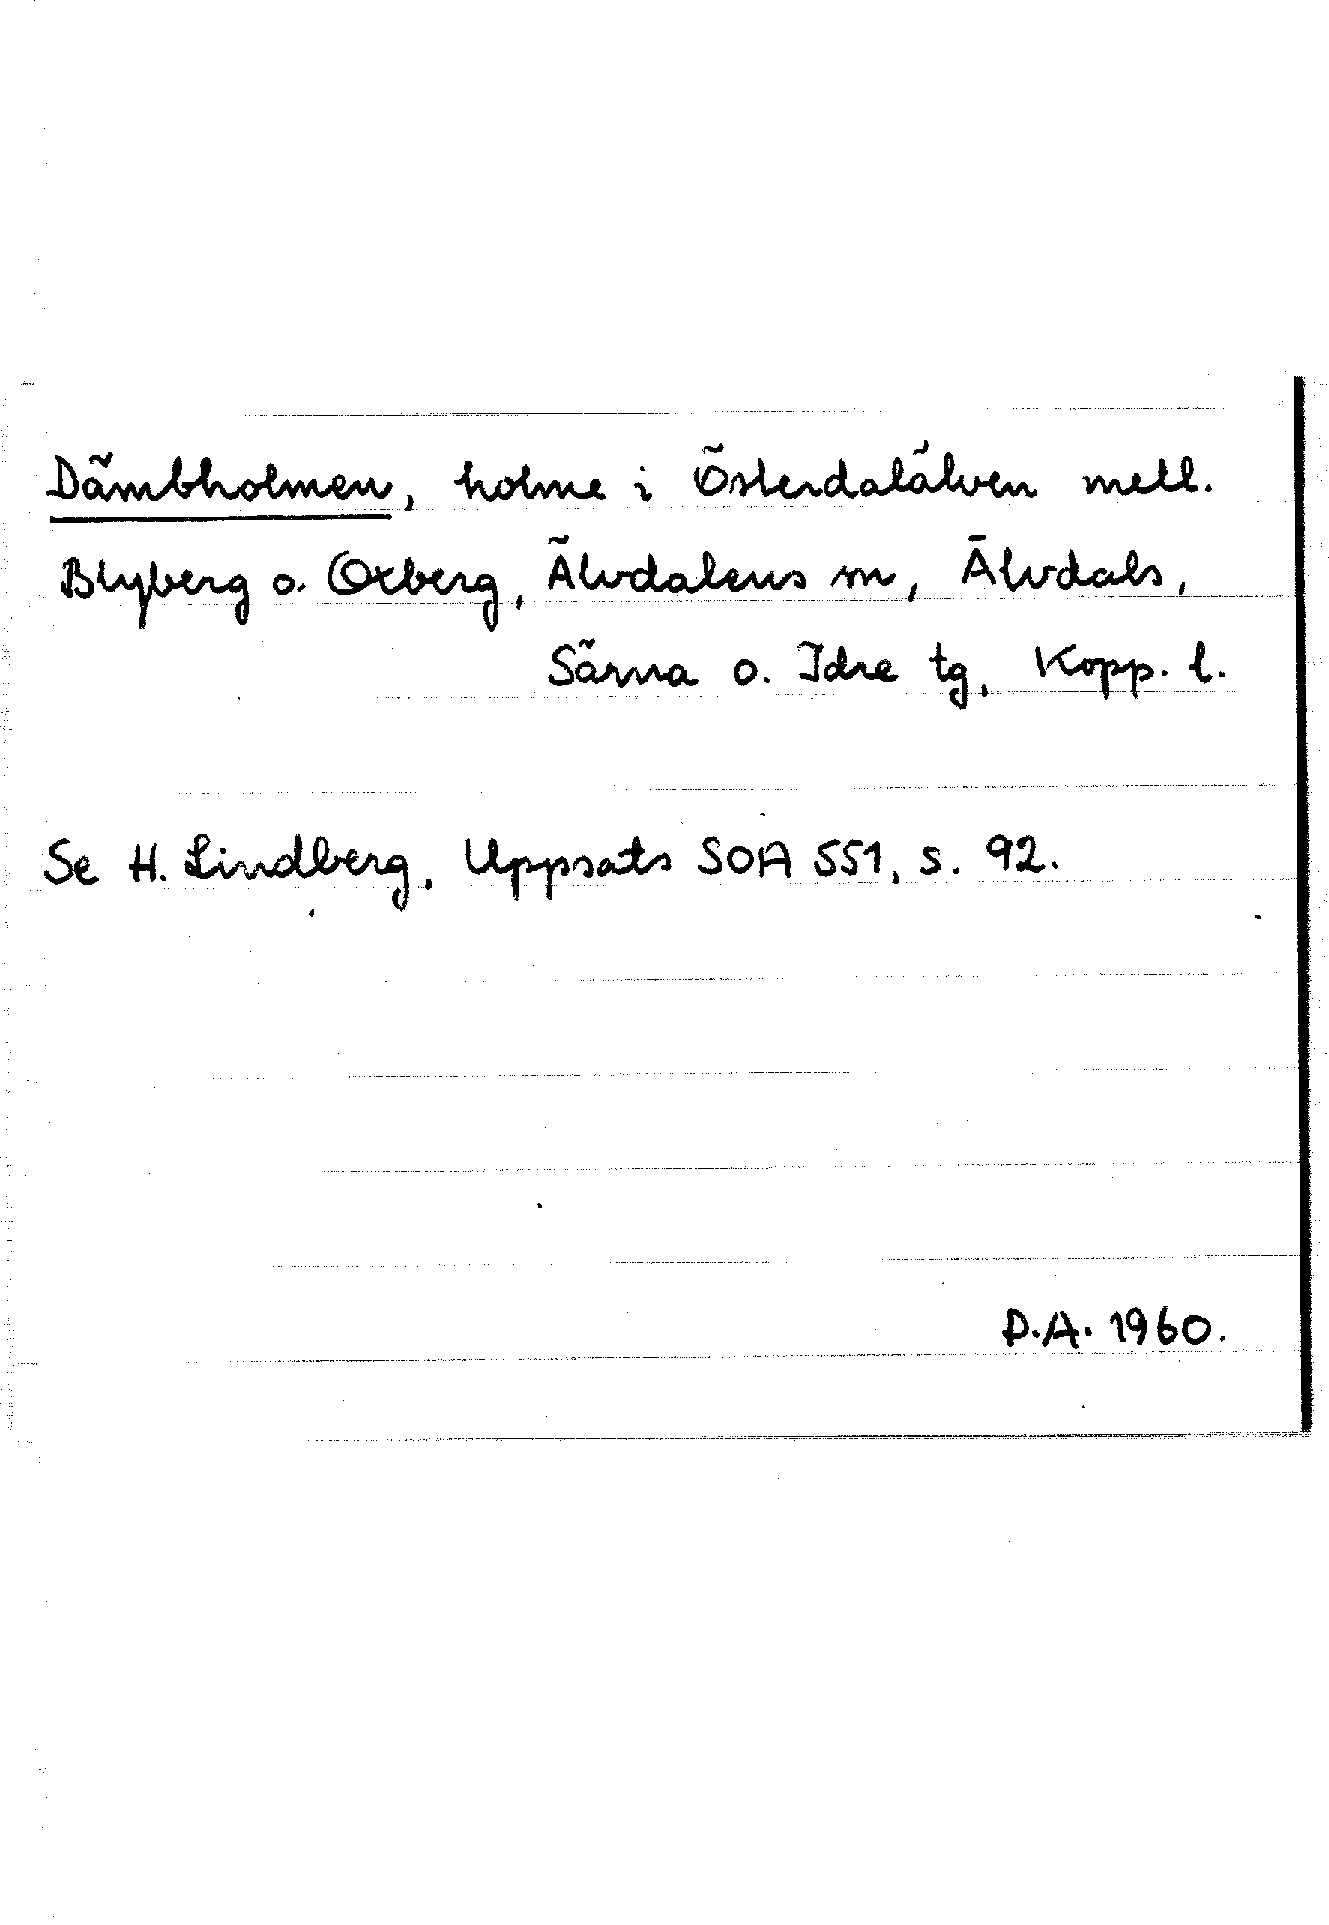 Dämbholmen, holme i Österdalälven mell.
Blyberg o. Oxberg, Älvdalens sn, Älvdals,
Särna o. Idre tg, Kopp. l.
Se H. Lindberg, Uppsats SOA 551, s. 92.
D.A. 1960.